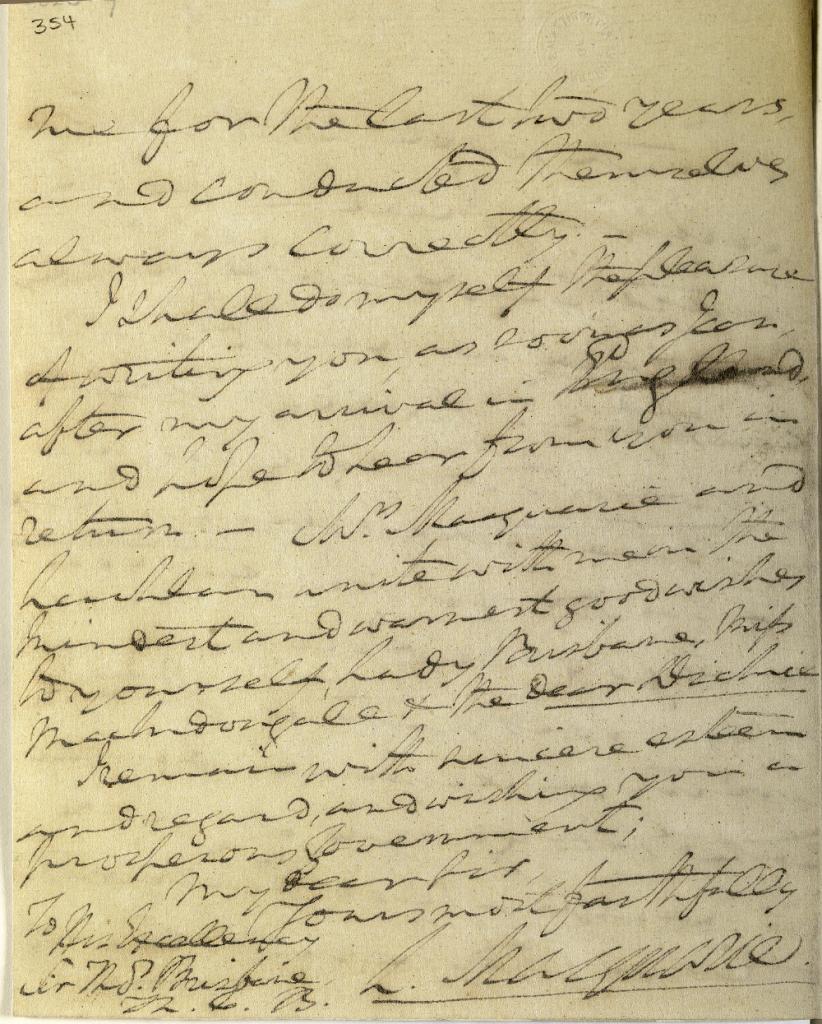 354
me for the last two years,
and conducted themselves
always correctly. —
I shall do myself the pleasure
of writing you, as soon as I can,
after my arrival in England,
and hope to hear from you in
return. — Mrs. Macquarie and
Lachlan unite with me in the
kindest and warmest good wishes
to yourself, Lady Brisbane, Miss
Macdougall & the dear Dickie
I remain with sincere esteem
and regard, and wishing you a
prosperous Government;
My dear Sir,
Yours most faithfully
L. Macquarie.
To His Excellency
Sir Thos. Brisbane
K. C. B.